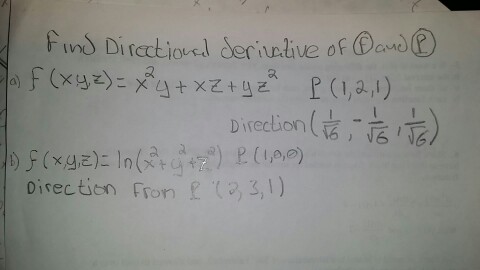 Find Directional derivative of (F) and (P)
a) f(x,y,z) = x²y + xz + yz² P (1,2,1)
Direction (1/√6, -1/√6, 1/√6)
b) f(x,y,z) = ln(x²+y²+z²) P (1,0,0)
Direction From P (2,3,1)